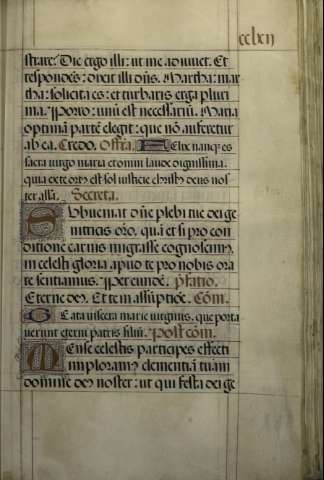 cclxii
strare: Dic ergo illi: ut me adiuuet. Et
respondēs: dixit illi dñs. Martha: mar
tha: solicita es: et turbaris erga pluri
ma. Porro: unū est necessariū. Maria
optimā partē elegit: que nō auferetur
ab ea. Credo. Offra. Felix nanq; es
sacra uirgo maria et omni laude dignissima.
quia ex te ortus est sol iusticie christus deus nos
ter assa. Secreta.
Subueniat dñe plebi tue dei ge
nitricis oro, quā et si pro con
ditione carnis migrasse cognoscim⁹,
in celesti gloria apud te pro nobis ora
re sentiamus. Per eundē. p̄fatio.
Eterne de⁹. Et te in assūptiōe. Cōm.
Beata uiscera marie uirginis, que porta
uerunt eterni patris filiū. Post cōm.
Mense celestis participes effecti
imploram⁹ clementiā tuam
domine de⁹ noster: ut qui festa dei ge